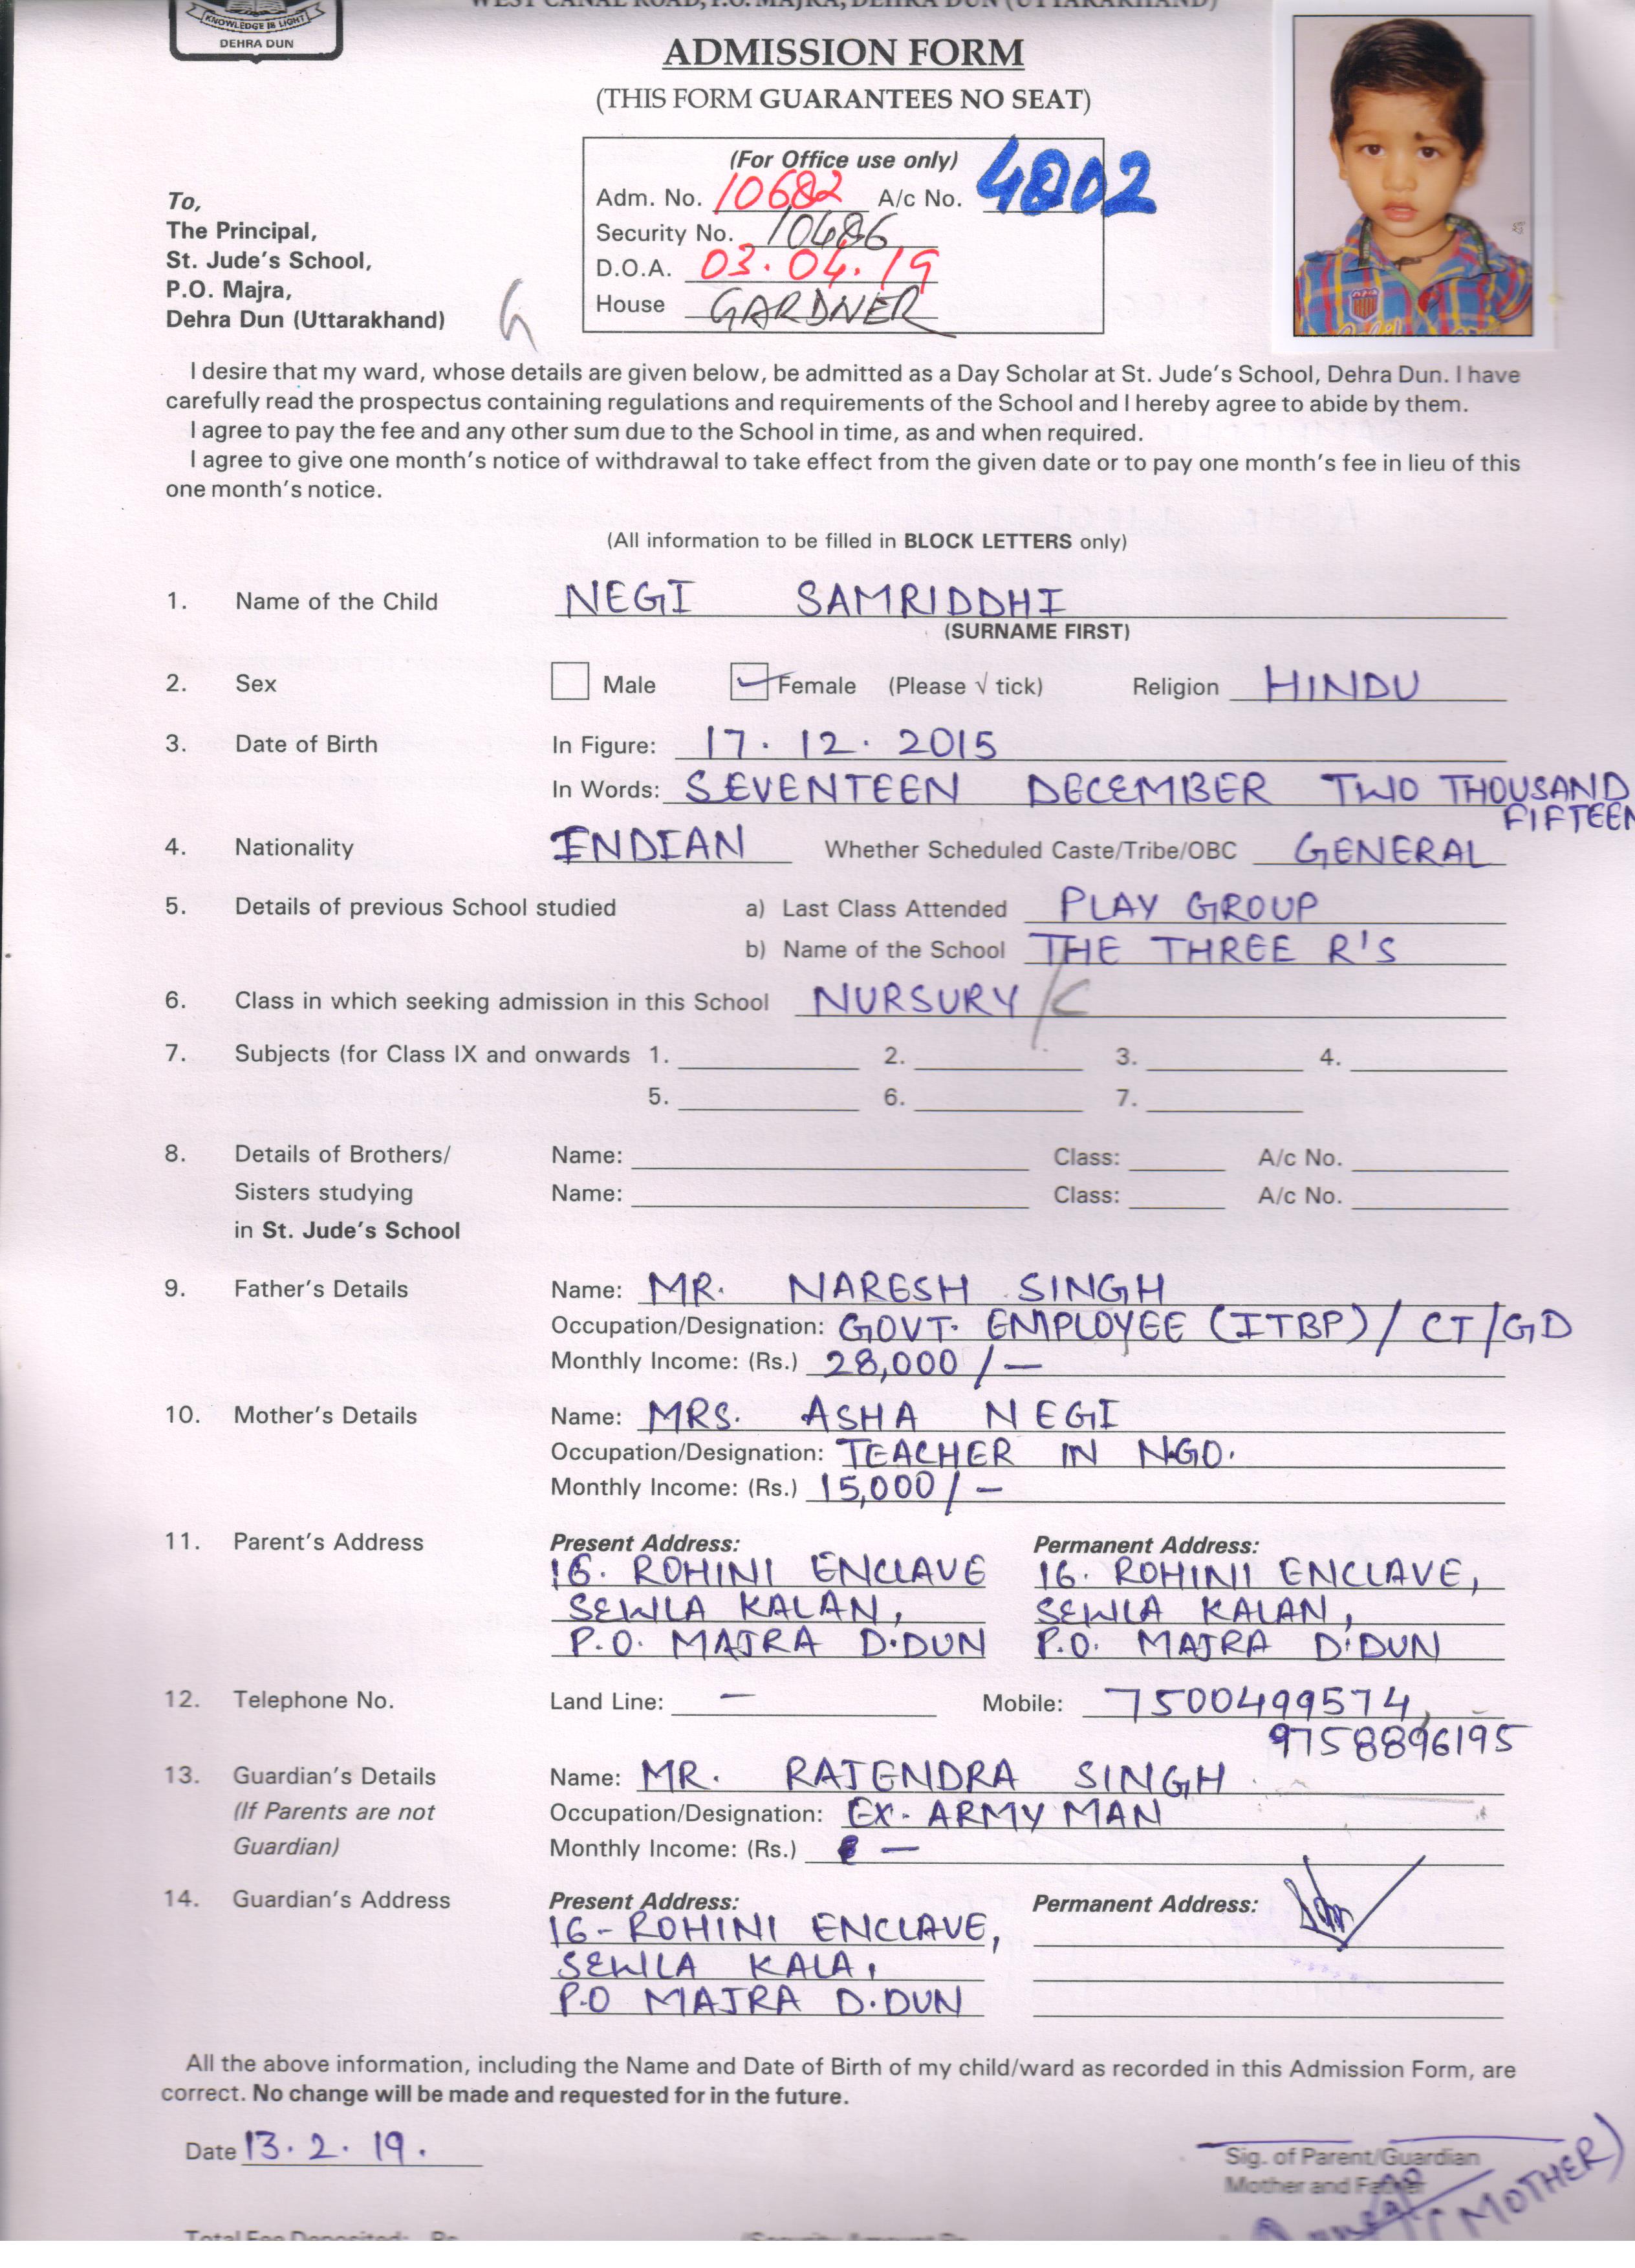 KNOWLEDGE IS LIGHT
DEHRA DUN
WEST CANAL ROAD, P.O. MAJRA, DEHRA DUN (UTTARAKHAND)
ADMISSION FORM
(THIS FORM GUARANTEES NO SEAT)
(For Office use only)
Adm. No. 10682 A/c No. 4802
Security No. 10486
D.O.A. 03.04.19
House GARDNER
To,
The Principal,
St. Jude's School,
P.O. Majra,
Dehra Dun (Uttarakhand)
G
I desire that my ward, whose details are given below, be admitted as a Day Scholar at St. Jude's School, Dehra Dun. I have
carefully read the prospectus containing regulations and requirements of the School and I hereby agree to abide by them.
I agree to pay the fee and any other sum due to the School in time, as and when required.
I agree to give one month's notice of withdrawal to take effect from the given date or to pay one month's fee in lieu of this
one month's notice.
(All information to be filled in BLOCK LETTERS only)
1. Name of the Child NEGI SAMRIDDHI
(SURNAME FIRST)
2. Sex Male Female (Please √ tick) Religion HINDU
3. Date of Birth In Figure: 17. 12. 2015
In Words: SEVENTEEN DECEMBER TWO THOUSAND
FIFTEEN
4. Nationality INDIAN Whether Scheduled Caste/Tribe/OBC GENERAL
5. Details of previous School studied a) Last Class Attended PLAY GROUP
b) Name of the School THE THREE R'S
6. Class in which seeking admission in this School NURSURY /C
7. Subjects (for Class IX and onwards 1. 2. 3. 4.
5. 6. 7.
8. Details of Brothers/ Name: Class: A/c No.
Sisters studying Name: Class: A/c No.
in St. Jude's School
9. Father's Details Name: MR. NARESH SINGH
Occupation/Designation: GOVT. EMPLOYEE (ITBP) / CT/GD
Monthly Income: (Rs.) 28,000 /-
10. Mother's Details Name: MRS. ASHA NEGI
Occupation/Designation: TEACHER IN N.GO.
Monthly Income: (Rs.) 15,000/-
11. Parent's Address Present Address: Permanent Address:
16. ROHINI ENCLAVE 16. ROHINI ENCLAVE,
SEWLA KALAN, SEWLA KALAN,
P.O. MAJRA D.DUN P.O. MAJRA D.DUN
12. Telephone No. Land Line: - Mobile: 7500499574,
9758896195
13. Guardian's Details Name: MR. RAJENDRA SINGH
(If Parents are not Occupation/Designation: EX- ARMY MAN
Guardian) Monthly Income: (Rs.) -
14. Guardian's Address Present Address: Permanent Address:
16-ROHINI ENCLAVE,
SEWLA KALA,
P.O MAJRA D.DUN
All the above information, including the Name and Date of Birth of my child/ward as recorded in this Admission Form, are
correct. No change will be made and requested for in the future.
Date 13. 2. 19.
Sig. of Parent/Guardian
Mother and Father
(MOTHER)
Total Fee Deposited: Rs.